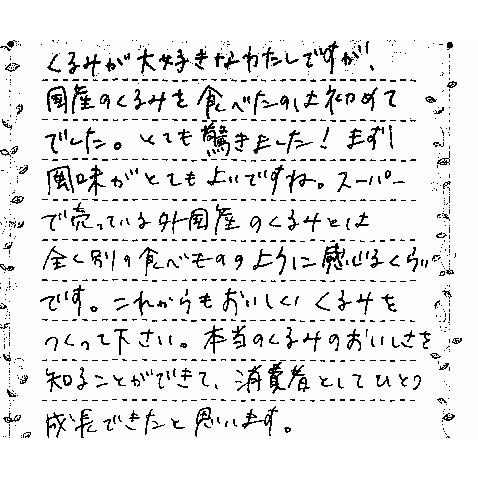 くるみが大好きなわたしですが、
国産のくるみを食べたのは初めて
でした。とても驚きました！まず！
風味がとてもよいですね。スーパー
で売っている外国産のくるみとは
全く別の食べもののように感じるくらい
です。これからもおいしくくるみを
つくって下さい。本当のくるみのおいしさを
知ることができて、消費者としてひとつ
成長できたと思います。